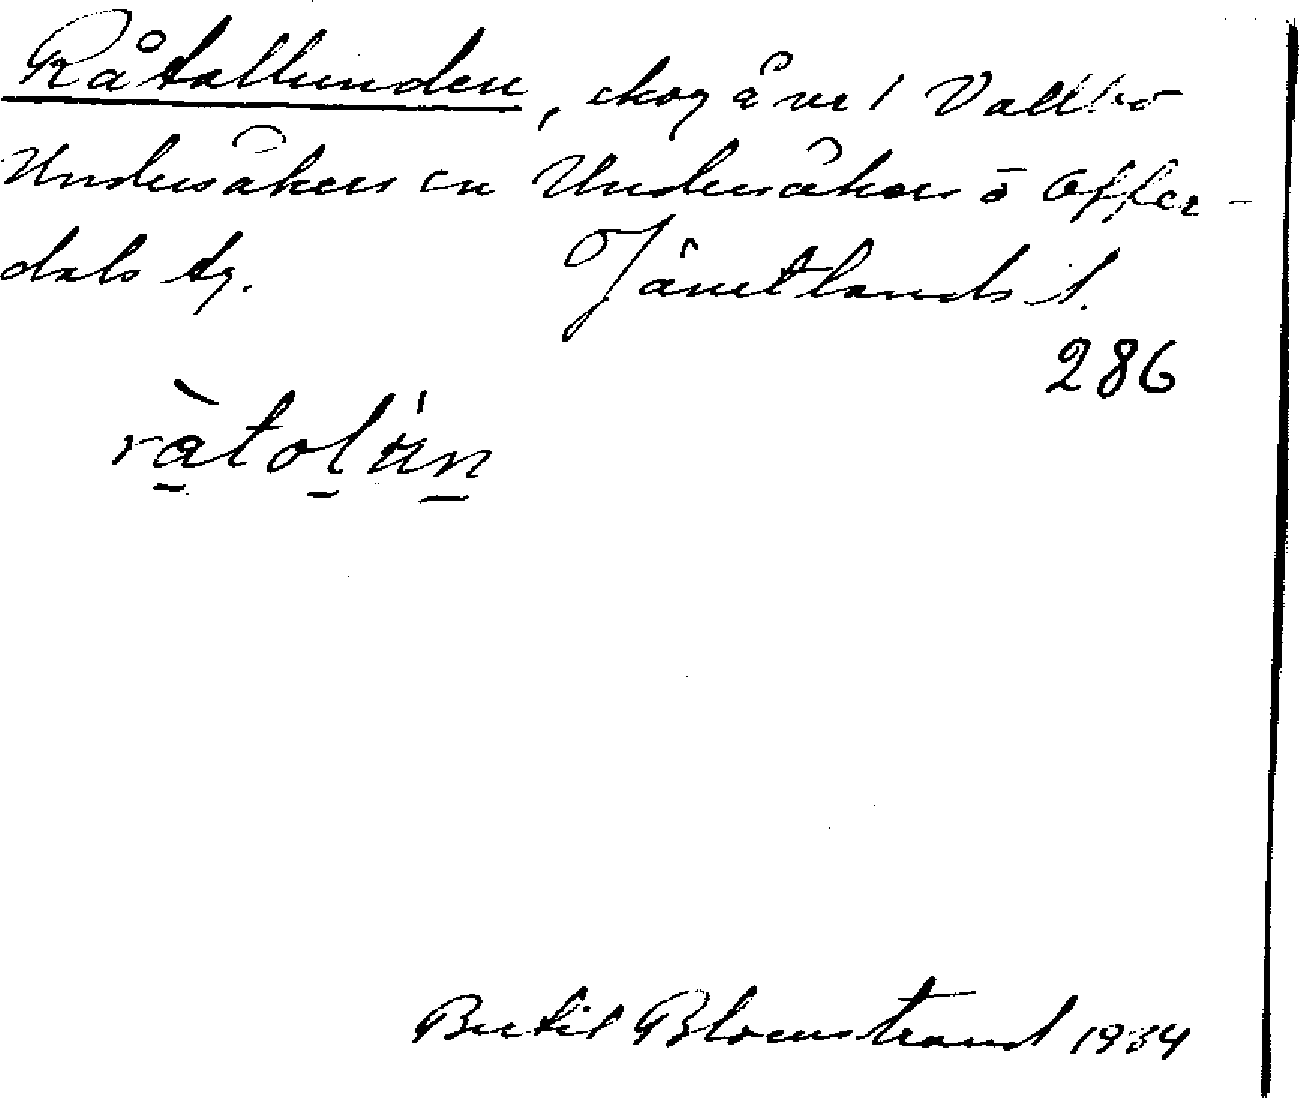 Råtallunden, skog å ver i Vallbo
Undersåkers sn Undersåkers o Offer-
dals tg. Jämtlands l.
286
ràtolún
Bertil Blomstrand 1934